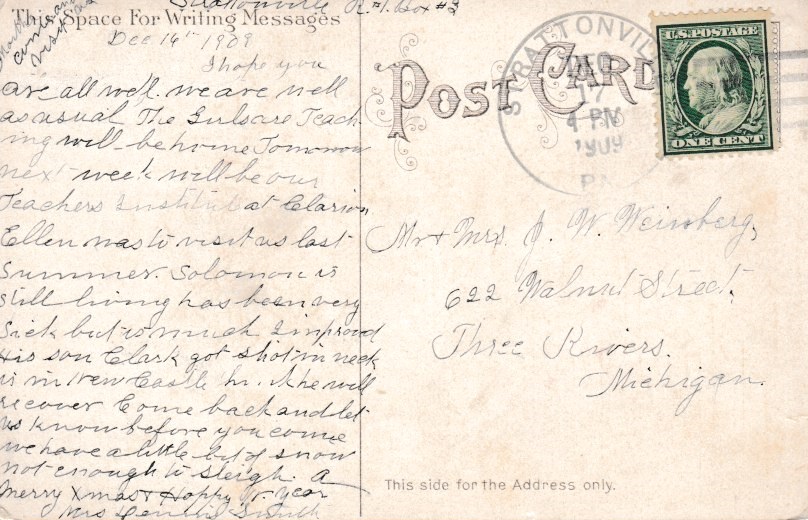 This Space For Writing Messages
R #1 Box #3
come and
visit
Dec 14th 1909
I hope you
are all well. we are well
as usual The Girls are Teach
ing will be home Tomorrow
next week will be our
Teachers Institut at Clarion
Ellen was to visit us last
Summer. Solomon is
still living has been very
Sick but is much Improvd
His son Clark got shot in neck
is in New Castle he will
recover Come back and let
us know before you come
we have a little bit of snow
not enough to sleigh. A
Merry Xmas & Happy N year
Mrs Smith
POST CARD
STRATTONVIL
DEC
17
4 PM
1909
PA
U.S. POSTAGE
ONE CENT
Mr & Mrs. J. W. Weinberg,
622 Walnut Street,
Three Rivers.
Michigan.
This side for the Address only.